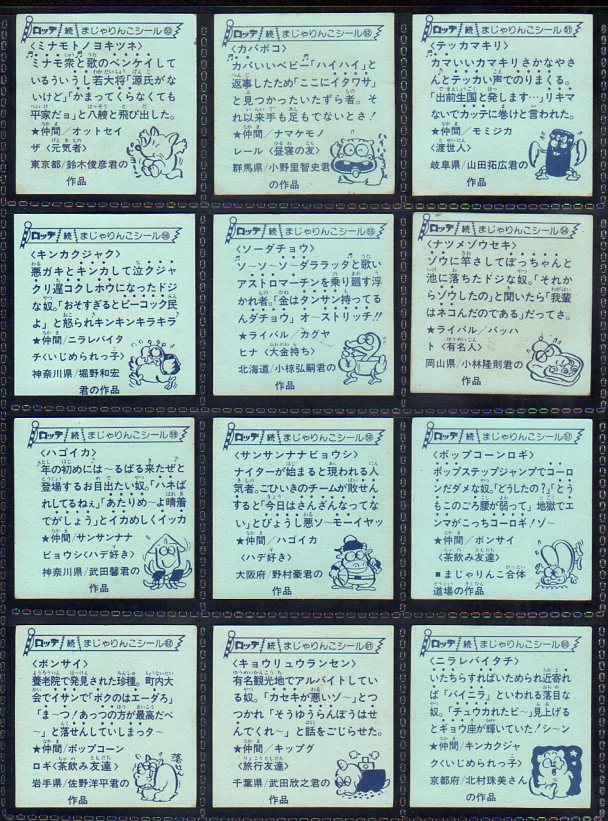 ロッテ 続 まじゃりんこシール 53
<ミナモトノヨキツネ>
ミナモ衆と歌のベンケイして
いるういうい若大将「源氏がな
いけど」「かまってくらなくても
平家だョ」と八艘と飛び出した。
★仲間/オットセイ
ザ<元気者>
東京都/鈴木俊彦君の
作品
ロッテ 続 まじゃりんこシール 52
<カバボコ>
カバいいベビー「ハイハイ」と
返事したため「ここにイタワサ」
と見つかったいたずら者。そ
れ以来手も足もでないとさ!
★仲間/ナマケモノ
レール<昼寝の友>
群馬県/小野里智史君
の作品
ロッテ 続 まじゃりんこシール 51
<テッカマキリ>
カマいいカマキリさかなやさ
んとテッカい声でのりまくる。
「出前生国と発します…」リキマ
ないでカッテに巻けと言われた。
★仲間/モミジカ
<渡世人>
岐阜県/山田拓広君の
作品
ロッテ 続 まじゃりんこシール 56
<キンカクジャク>
悪ガキとキンカして泣クジャ
クリ遅コクしホウになったドジ
な奴。「おそすぎるとピーコック民
よ」と怒られキンキンキラキラ
★仲間/ニラレバイタ
チ<いじめられっ子>
神奈川県/堀野和宏
君の作品
ロッテ 続 まじゃりんこシール 55
<ソーダチョウ>
ソ〜ソ〜ソーダララッタと歌い
アストロマーチンを乗り廻す浮
かれ者。「金はタンサン持ってる
んダチョウ」オ〜ストリッチ!!
★ライバル/カグヤ
ヒナ<大金持ち>
北海道/小椋弘嗣君の
作品
ロッテ 続 まじゃりんこシール 54
<ナツメゾウセキ>
ゾウに竿さしてぼっちゃんと
池に落ちたドジな奴。「それ
からゾウしたの」と聞いたら「我輩
はネコんだのである」だってさ。
★ライバル/バッハ
ト<有名人>
岡山県/小林隆則君の
作品
ロッテ 続 まじゃりんこシール 59
<ハゴイカ>
年の初めには〜るばる来たぜと
登場するお目出たい奴。「ハネば
れしてるねぇ」「あたりめ〜よ晴着
でがしょう」とイカめしくイッカ
★仲間/サンサンナナ
ビョウシ<ハデ好き>
神奈川県/武田馨君の
作品
ロッテ 続 まじゃりんこシール 58
<サンサンナナビョウシ>
ナイターが始まると現われる人
気者。ごひいきのチームが敗せん
すると「今日はさんざんなってな
い」とびょうし悪ソ〜モーイヤッ
★仲間/ハゴイカ
<ハデ好き>
大阪府/野村豪君の
作品
ロッテ 続 まじゃりんこシール 57
<ポップコーンロギ>
ポップステップジャンプでコーロ
ンだダメな奴。「どうしたの?」「とう
もこのころ腰が弱って」地獄でエ
ンマがこっちコーロギ/ゾ〜
★仲間/ボンサイ
<茶飲み友達>
■まじゃりんこ合体
道場の作品
ロッテ 続 まじゃりんこシール 62
<ボンサイ>
養老院で発見された珍種。町内大
会でイサンで「ボクのはエーダろ」
「ま〜つ/あっつの方が最高だべ
〜」と落せんしていしまっタ〜
★仲間/ポップコーン
ロギ<茶飲み友達>
岩手県/佐野洋平君の
作品
ロッテ 続 まじゃりんこシール 61
<キョウリュウランセン>
有名観光地でアルバイトしてい
る奴。「カセキが悪いゾ〜」とつ
つかれ「そうゆうらんぼうはせ
んでくれ〜」と話をこじらせた。
★仲間/キップグ
<旅行友達>
千葉県/武田欣之君の
作品
ロッテ 続 まじゃりんこシール 60
<ニラレバイタチ>
いたちらすればいためられ近寄れ
ば「バイニラ」といわれる落目な
奴。「チュウカれたビ〜」見上げる
とギョウ座が輝いていた/シ〜ン
★仲間/キンカクジャ
ク<いじめられっ子>
京都府/北村珠美さん
の作品